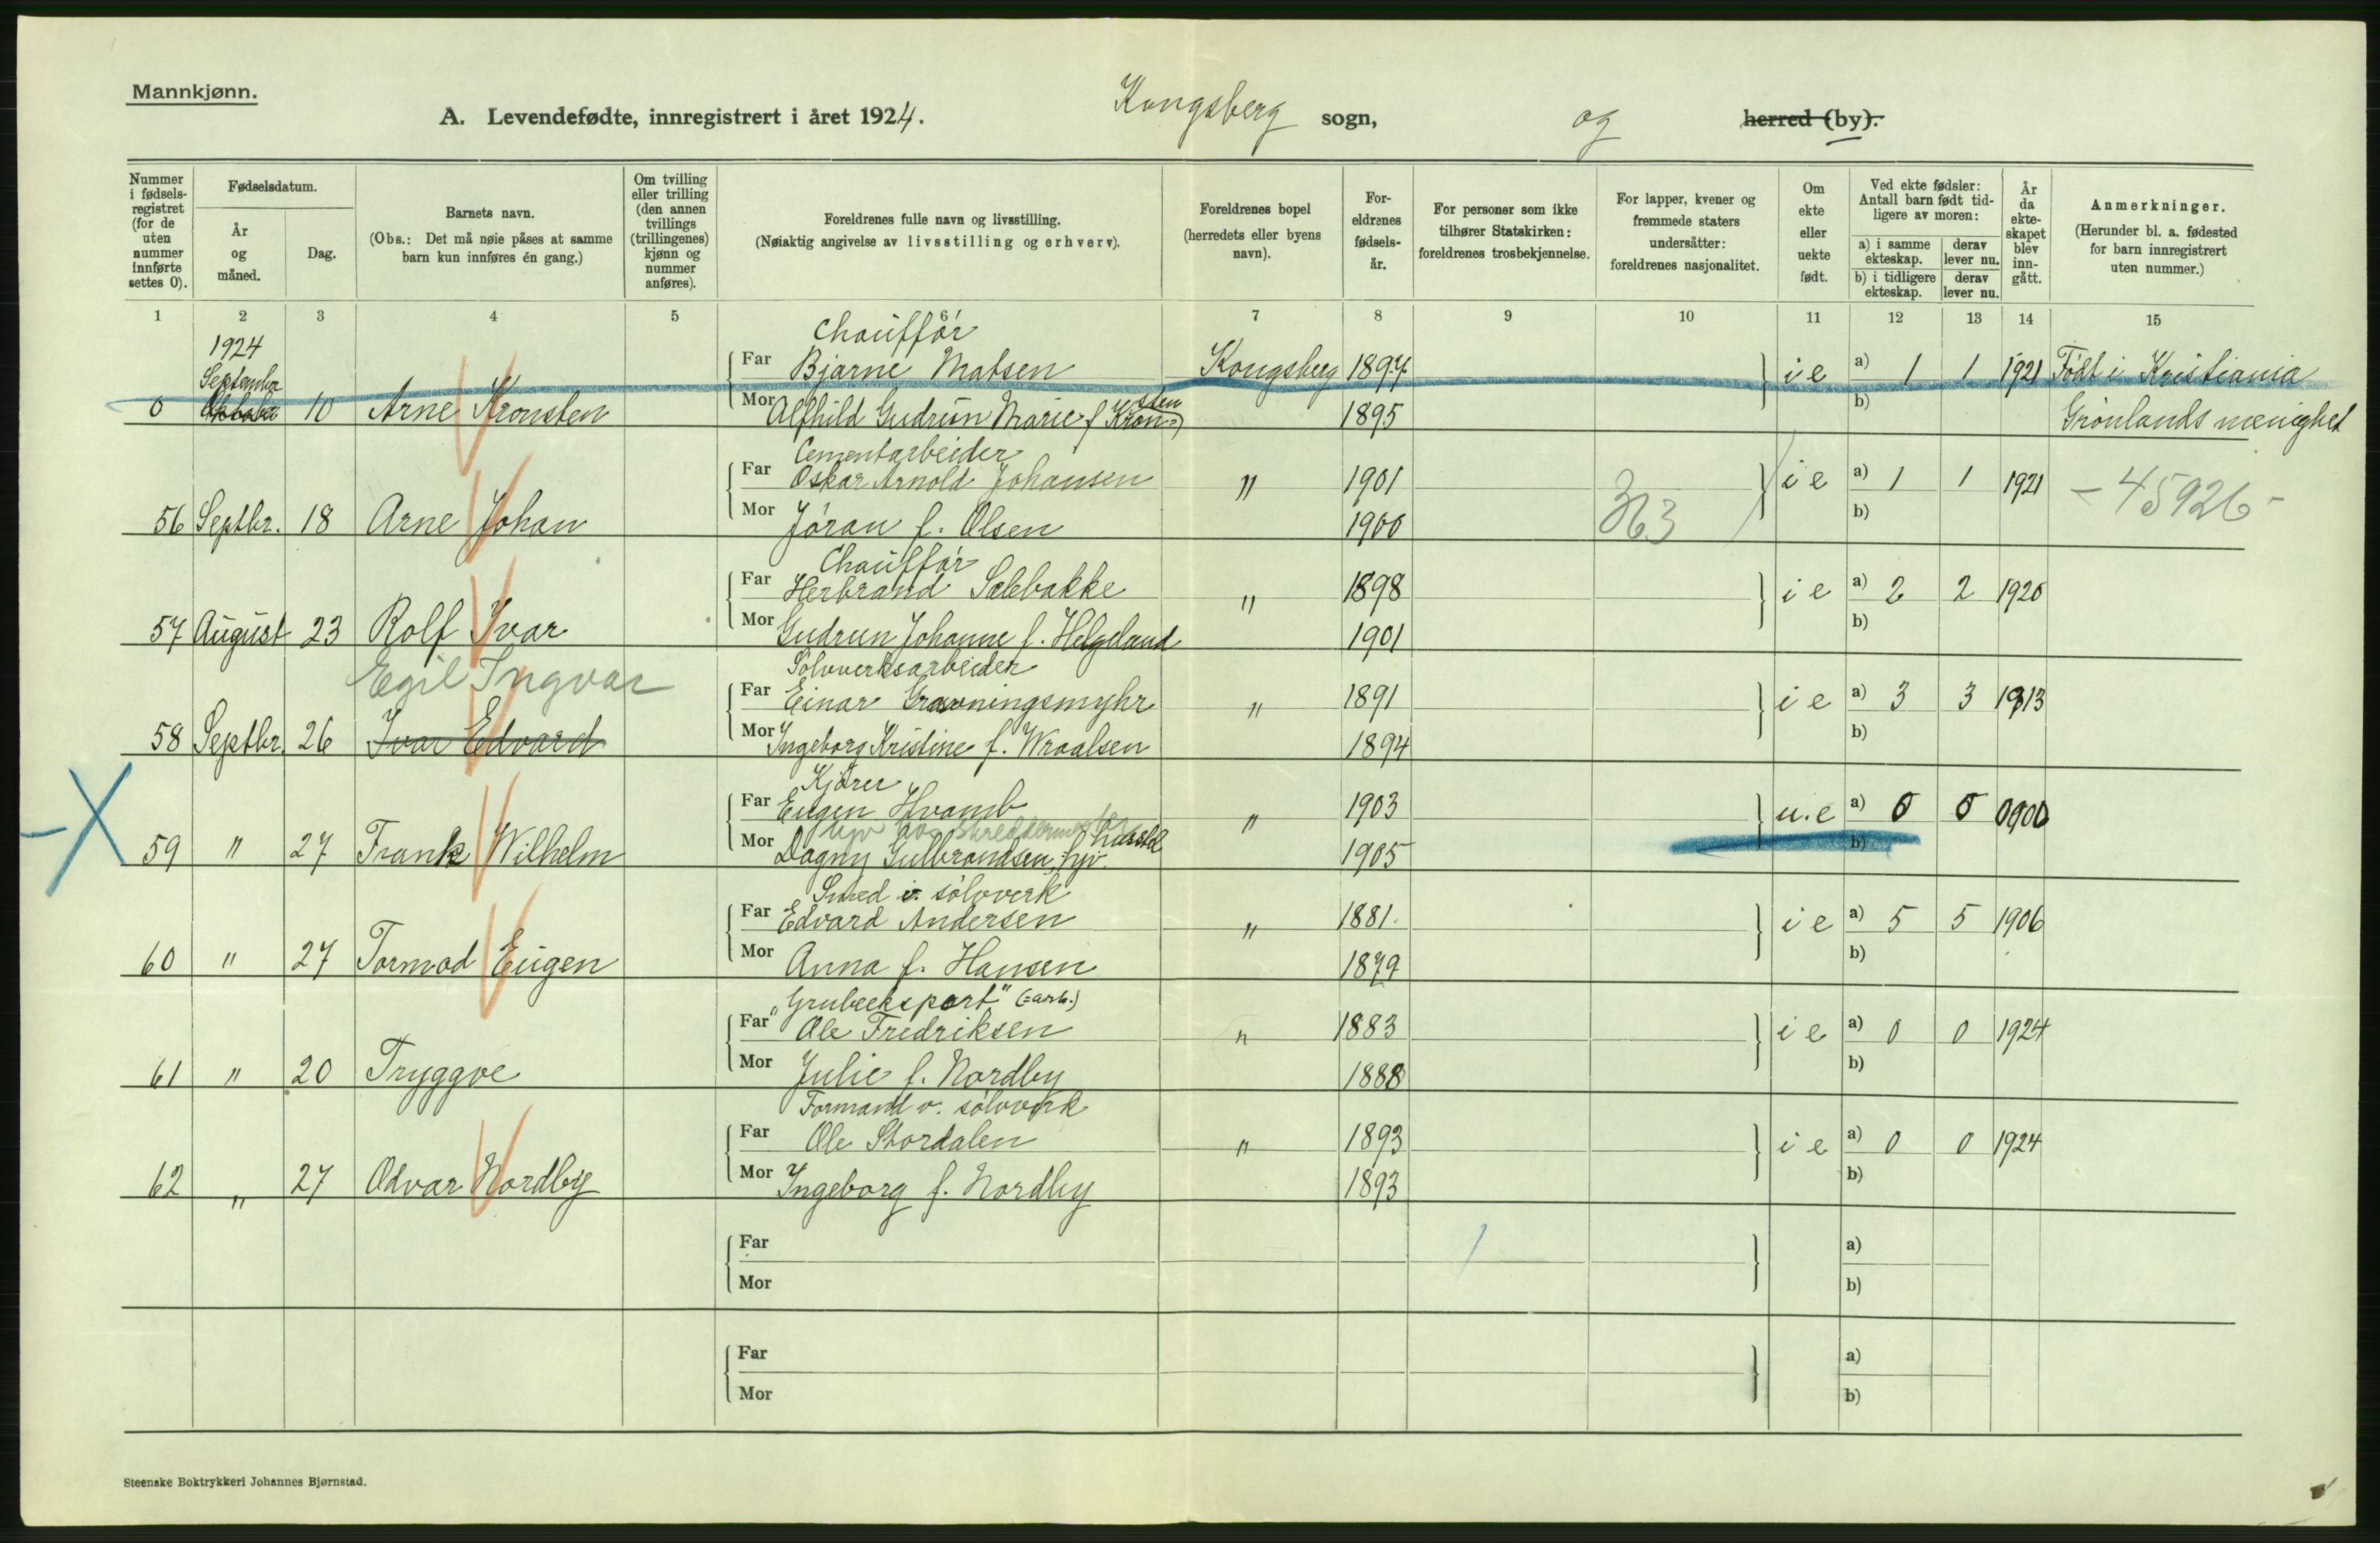 Mannkjønn.
A. Levendefødte, innregistrert i året 1924. Kongsberg sogn, og herred (by).
Nummer i fødsels-registret (for de uten nummer innførte settes 0).
Fødselsdatum.
År og måned.
Dag.
Barnets navn.
(Obs.: Det må nøie påses at samme barn kun innføres én gang.)
Om tvilling eller trilling (den annen tvillings (trillingenes) kjønn og nummer anføres).
Foreldrenes fulle navn og livsstilling.
(Nøiaktig angivelse av livsstilling og erhverv).
Foreldrenes bopel (herredets eller byens navn).
For-eldrenes fødsels-år.
For personer som ikke tilhører Statskirken: foreldrenes trosbekjennelse.
For lapper, kvener og fremmede staters undersåtter: foreldrenes nasjonalitet.
Om ekte eller uekte født.
Ved ekte fødsler: Antall barn født tid-ligere av moren:
a) i samme ekteskap.
derav lever nu.
b) i tidligere ekteskap.
derav lever nu.
År da ekte-skapet blev inn-gått.
Anmerkninger.
(Herunder bl. a. fødested for barn innregistrert uten nummer.)
1 2 3 4 5 6 7 8 9 10 11 12 13 14 15
1924
Chauffór
September
Far Bjarne Matsen Kongsberg 1894 i e a) 1 1 1921 Födt i Kristiania
0 Oktober 10 Arne Kronsten Mor Alfhild Gudrun Marie f Kron-sten 1895 b) Grönlands menighet
Cementarbeider
Far Oskar Arnold Johansen " 1901 i e a) 1 1 1921 - 45926 -
56 Septbr. 18 Arne Johan Mor Jóran f. Olsen 1900 363 b)
Chauffór
Far Herbrand Sælebakke " 1898 i e a) 2 2 1920
57 August 23 Rolf Ivar Mor Gudrun Johanne f. Helgeland 1901 b)
Egil Ingvar
Sólvverksarbeider
Far Einar Gravningsmyhr " 1891 i e a) 3 3 1913
58 Septbr. 26 Ivar Edvard Mor Ingeborg Kristine f. Wraalsen 1894 b)
Kjórer
Far Eugen Hvamb " 1903 u.e a) 0 0 0900
hjv hos skreddermester
59 " 27 Frank Wilhelm Mor Dagny Gulbrandsen, hjv. 1905 b)
Smed v. sólvverk
Far Edvard Andersen " 1881. i e a) 5 5 1906
60 " 27 Tormod Eugen Mor Anna f. Hansen 1879 b)
"Grubeeksport" (=arb.)
Far Ole Fredriksen " 1883 i e a) 0 0 1924
61 " 20 Tryggve Mor Julie f. Nordby 1888 b)
Formand v. sólvverk
Far Ole Stordalen " 1893 i e a) 0 0 1924
62 " 27 Odvar Nordby Mor Ingeborg f. Nordby 1893 b)
Far a)
Mor b)
Far a)
Mor b)
Steenske Boktrykkeri Johannes Bjørnstad.